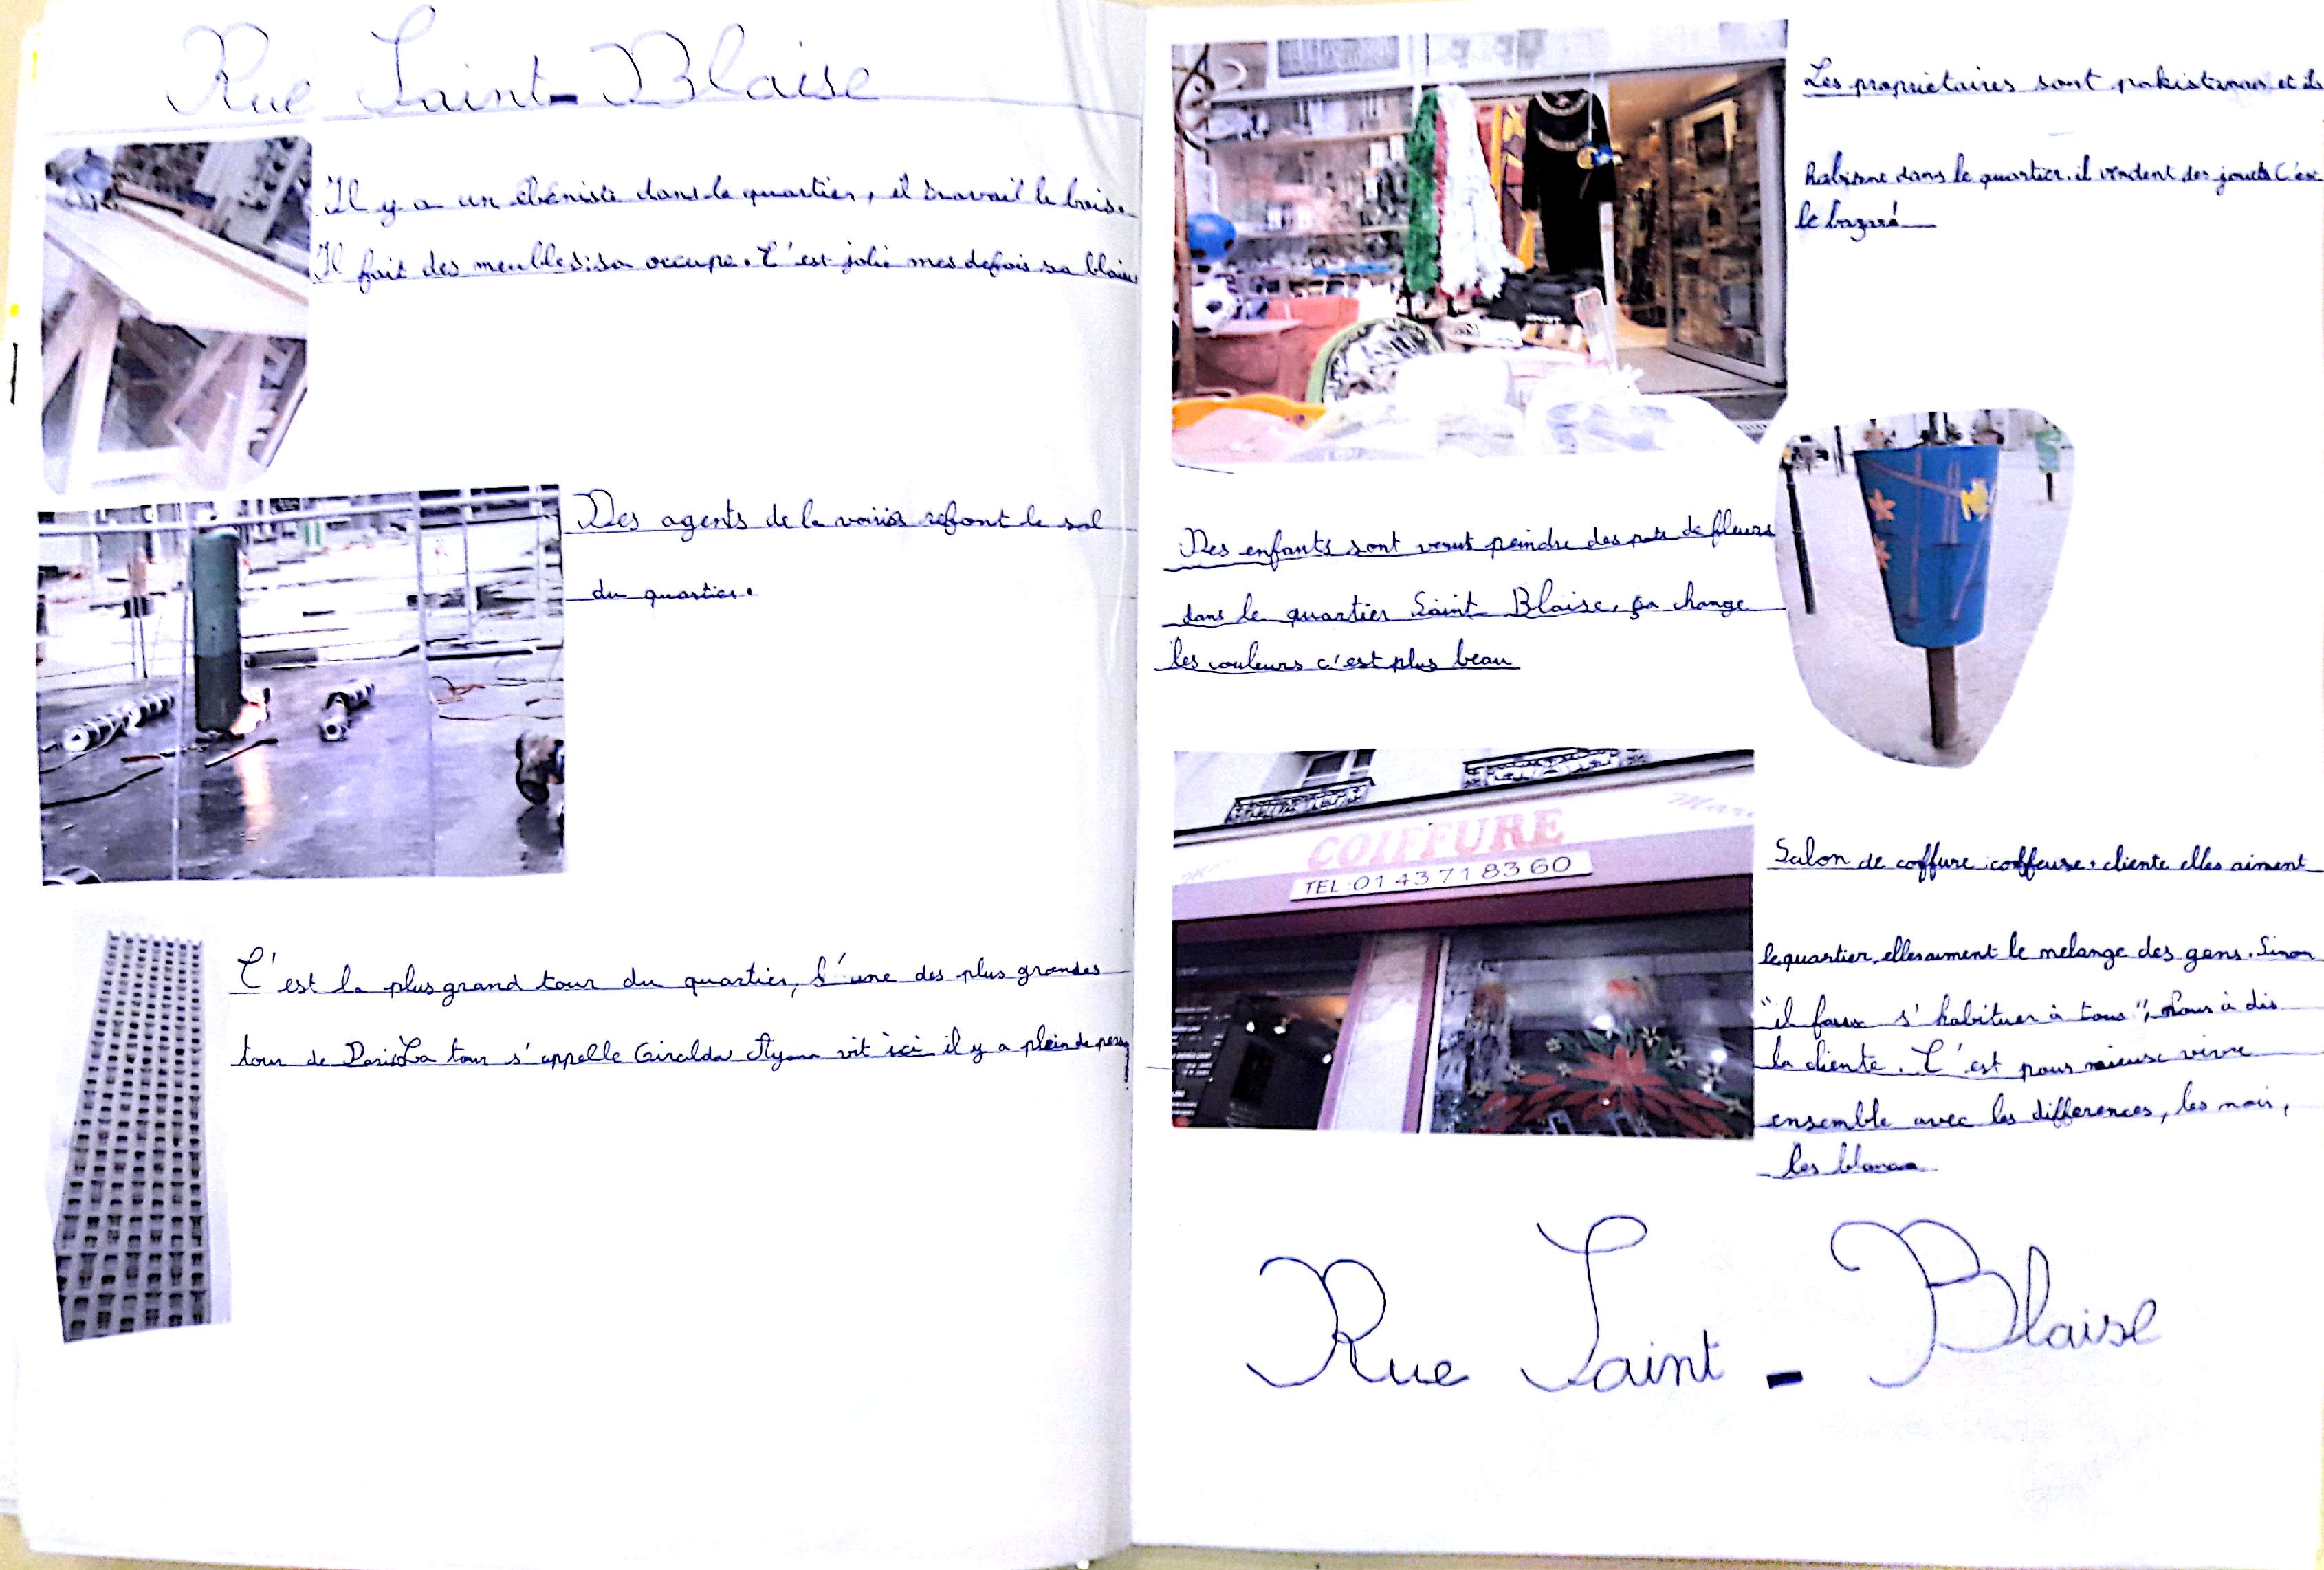 Rue Saint-Blaise
Il y a un ébéniste dans le quartier, il travail le bois.
Il fait des meubles: sa occupe. C'est jolie mes defois sa blaise
Des agents de la voirie refont le sol
du quartier.
C'est la plus grand tour du quartier, l'une des plus grandes
tour de Paris La tour s'appelle Giralda Ayana vit ici il y a plein de pers
Les propriétaires sont pakistanais et ils
habitent dans le quartier. il vendent des jouets C'est
le bazaré
Des enfants sont venut peindre des pots de fleurs
dans le quartier Saint-Blaise, ça change
les couleurs c'est plus beau
COIFFURE
TEL:01 43 71 83 60
Salon de coffure coiffeuse. cliente elles aiment
le quartier, elles aiment le melange des gens. Sinon
"il faux s'habituer à tous", nous à dis
la cliente. C'est pour mieux vivre
ensemble avec les differences, les noir,
les blancs
Rue Saint-Blaise